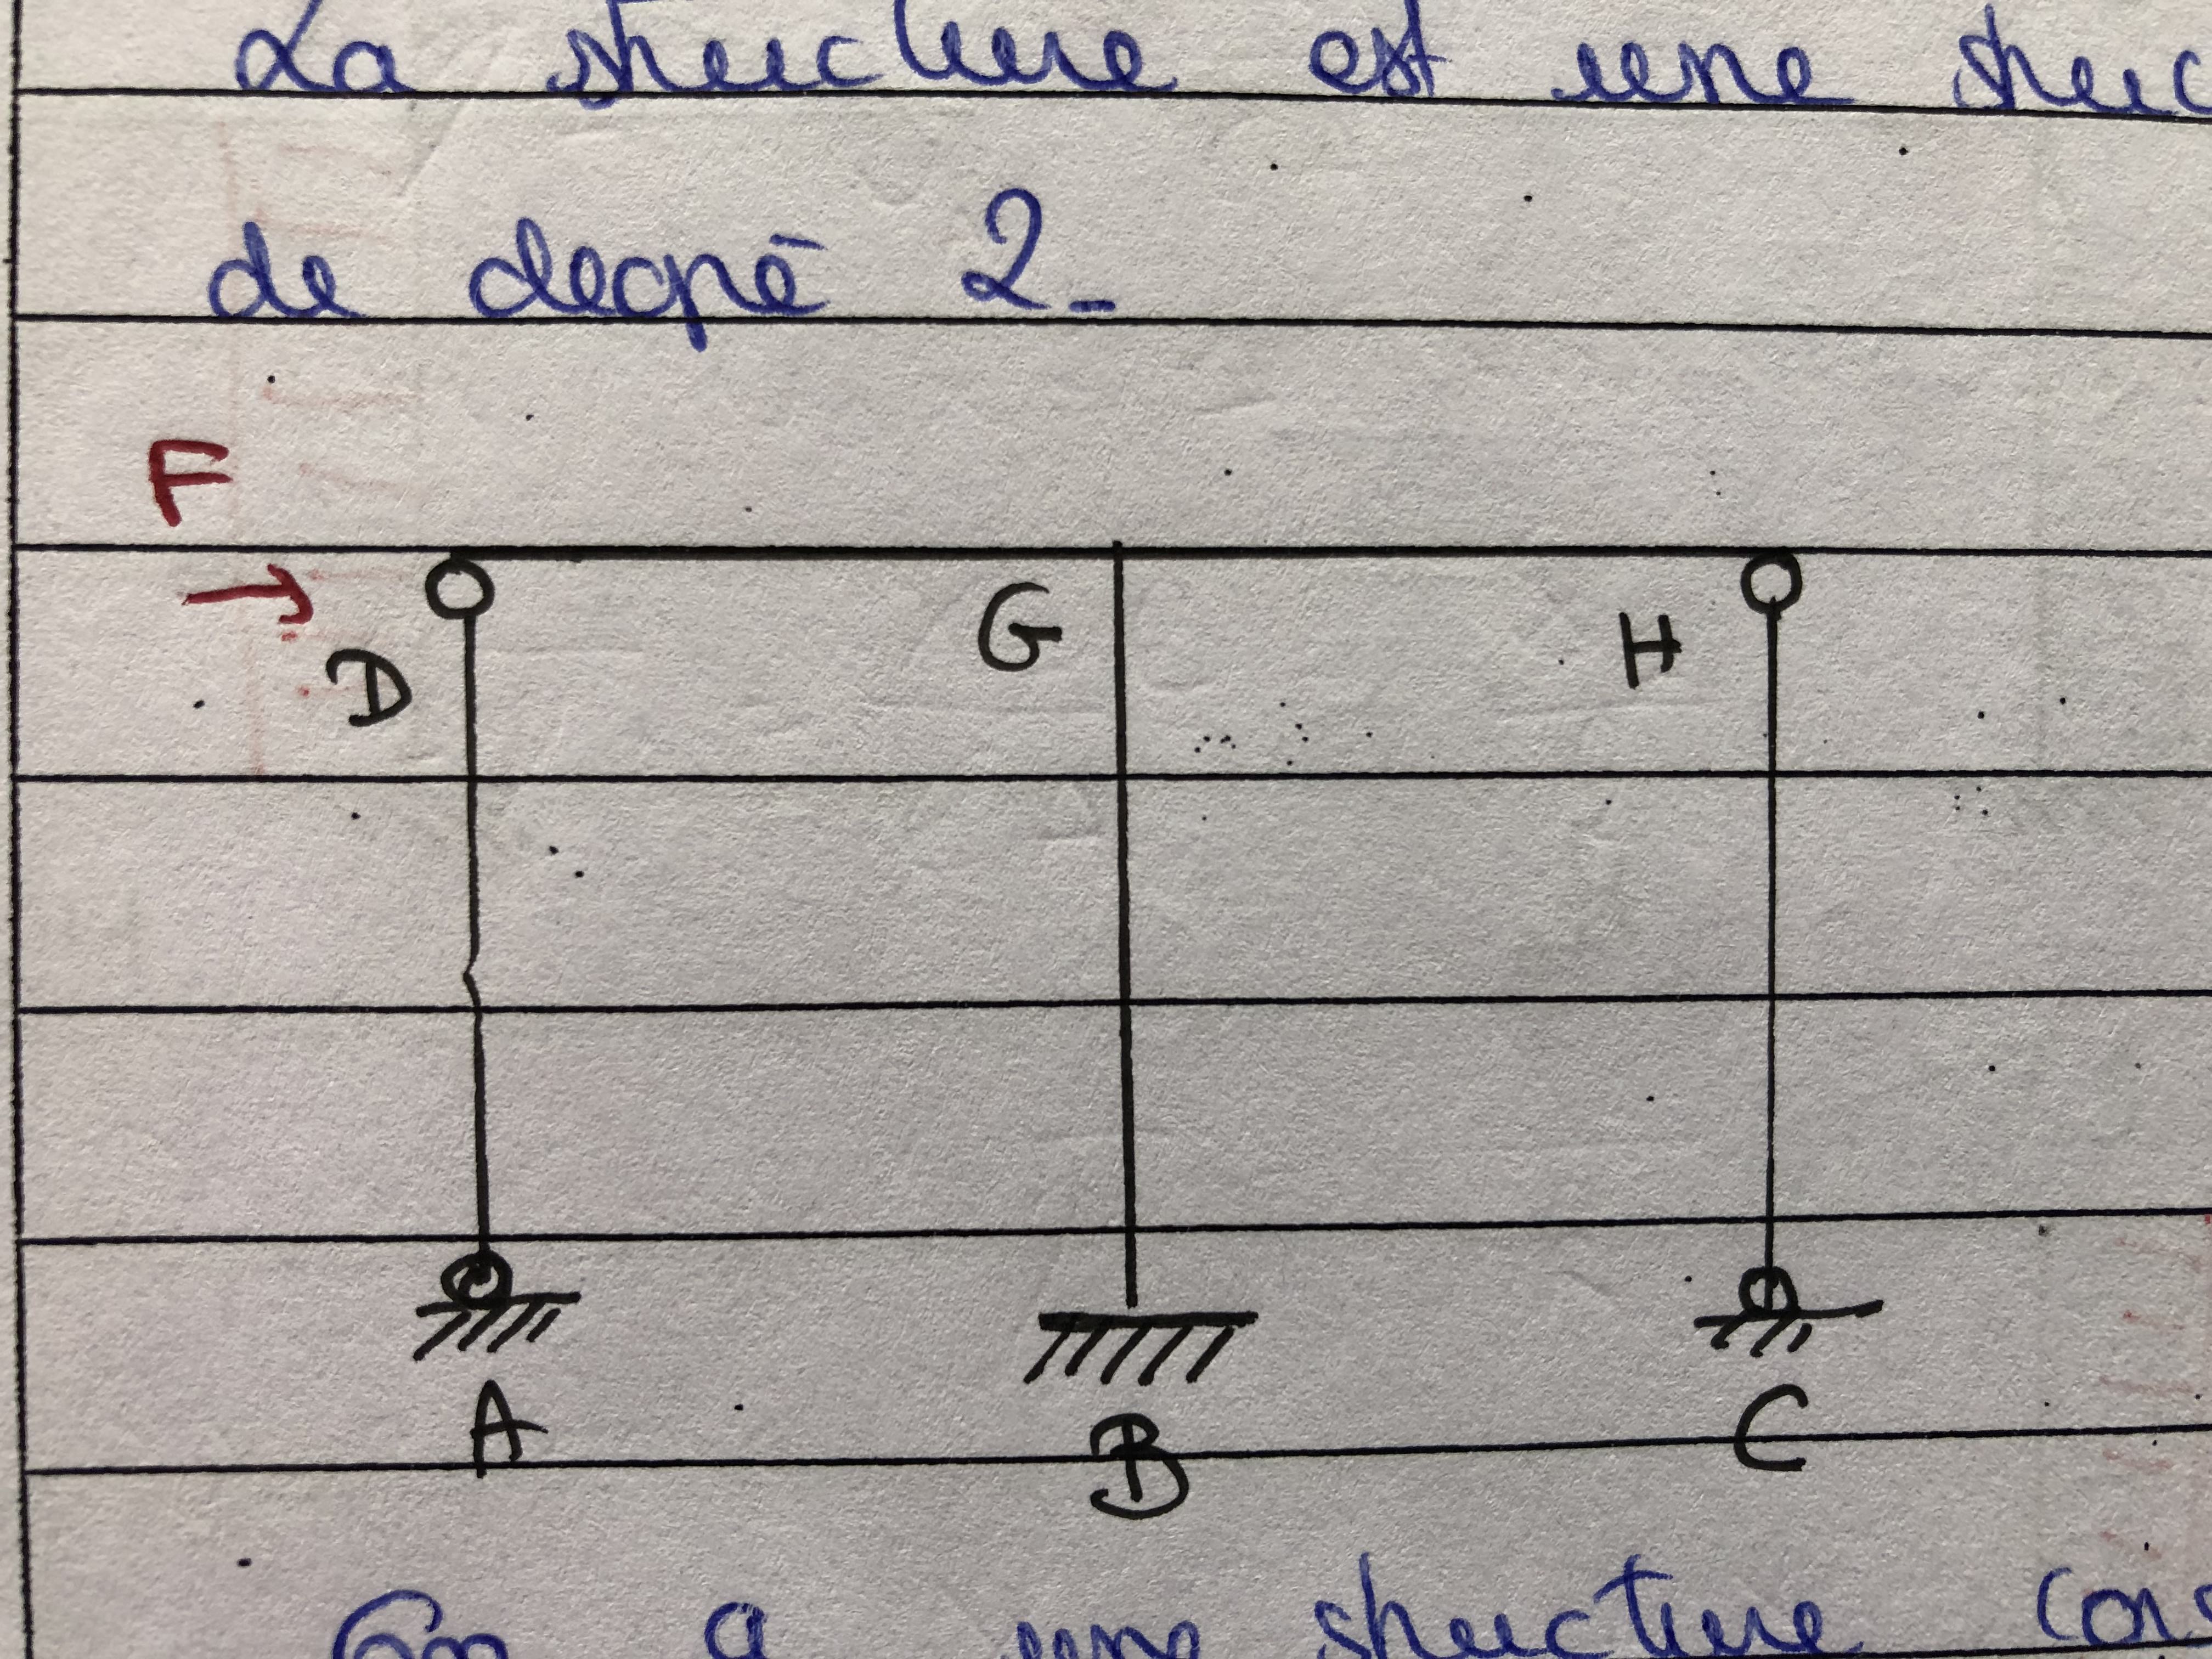 La structure est une struc
de degré 2.
F
D G H
A B C
On a une structure con